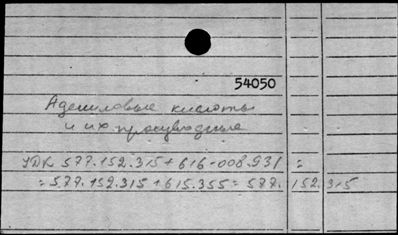 54050
Адениловые кислоты
и их производные
УДК 577.152.315+616-008.931 =
= 577.152.315+615.355= 577.152.315